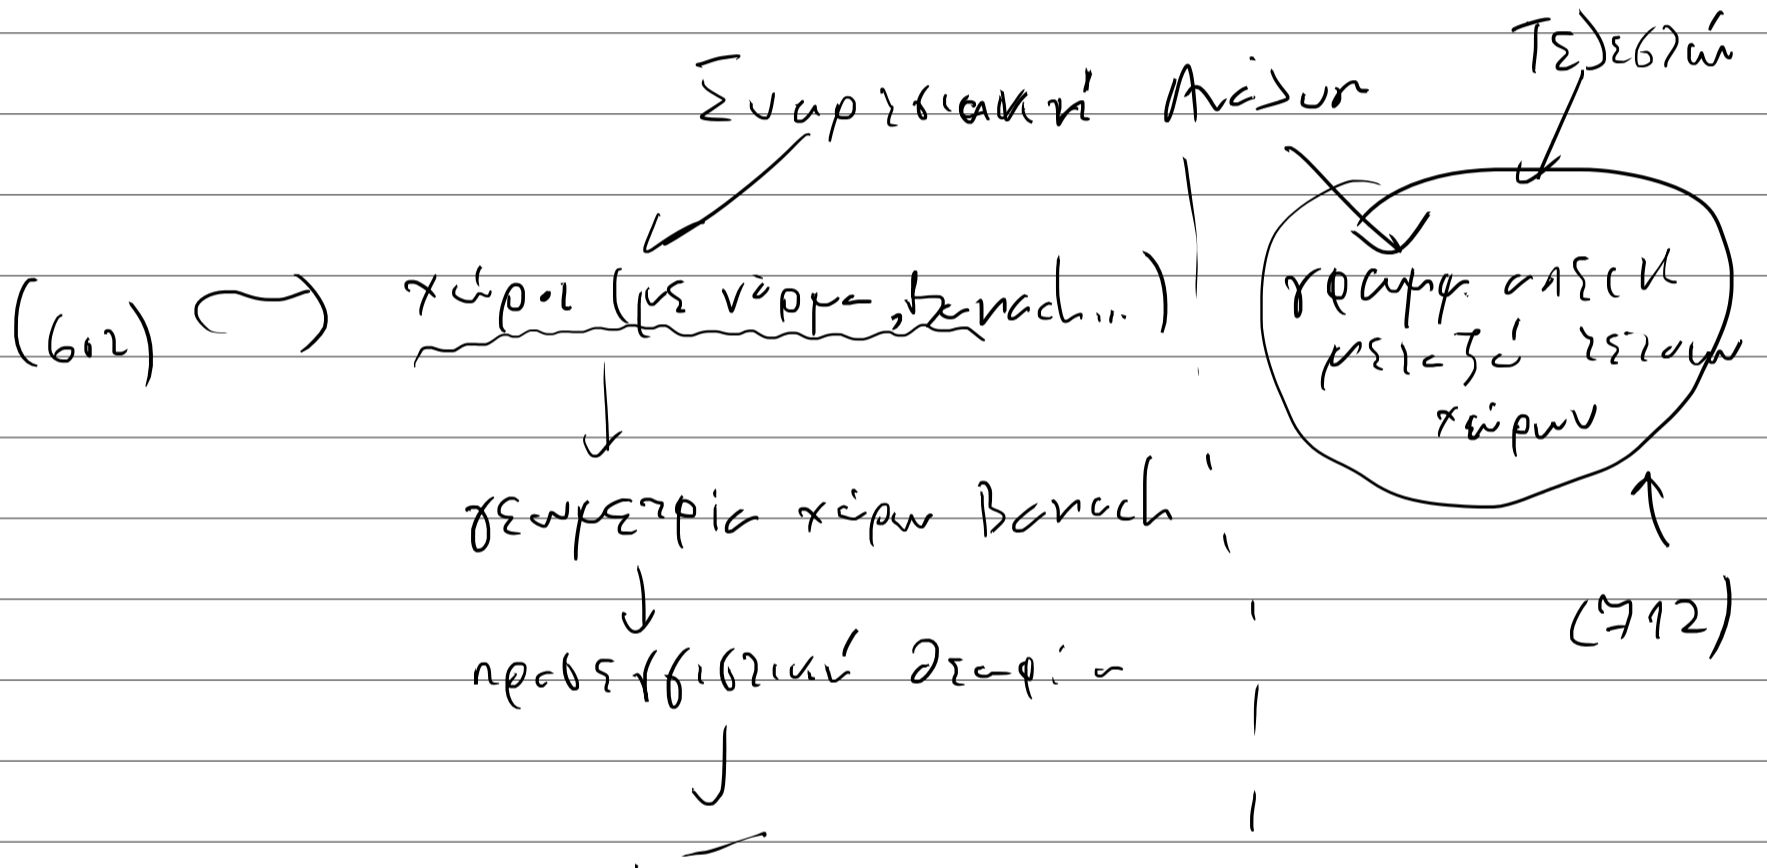 Τελεστών
Συναρτησιακή Ανάλυση
(602) χώροι (με νόρμα, Banach...)
γραμμ. απεικ
μεταξύ τέτοιων
χώρων
γεωμετρία χώρων Banach
(712)
προσεγγιστική θεωρία